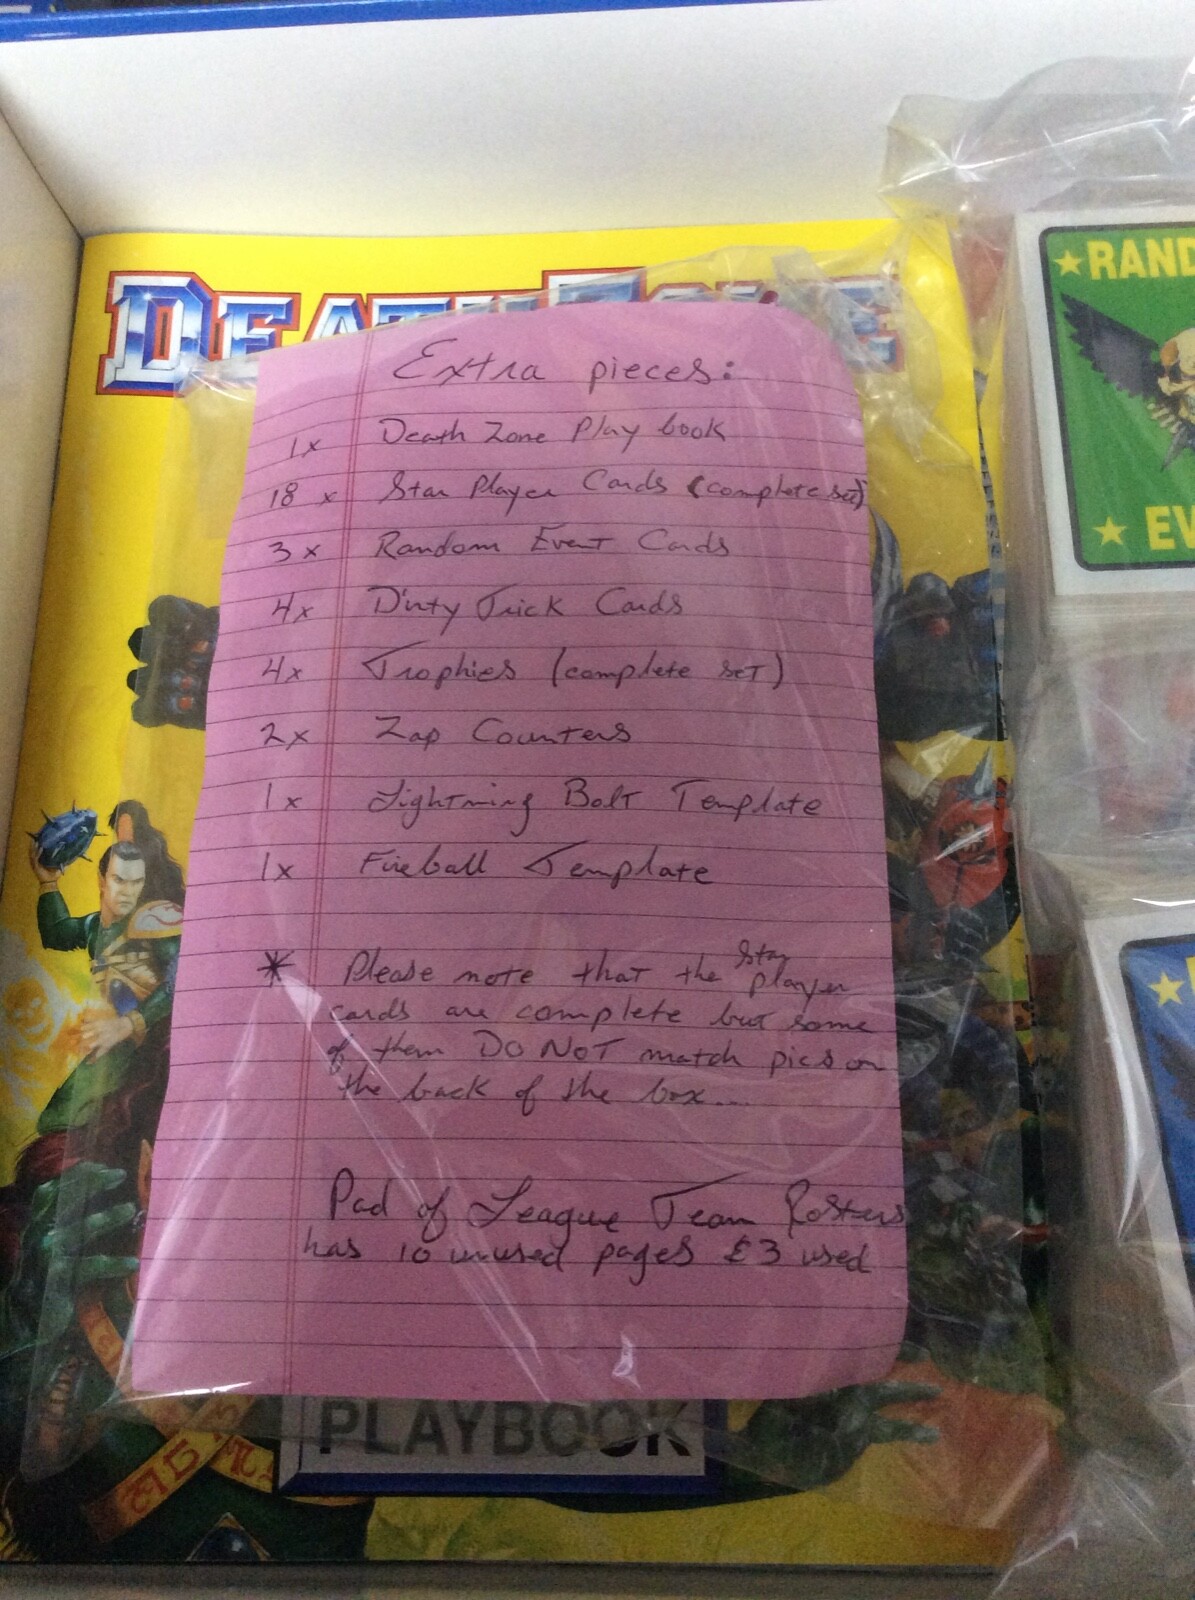 DEATH ZONE
★ RAND
★ EV
Extra pieces:
1x Death Zone Play book
18 x Star Player Cards (complete set)
3x Random Event Cards
4x Dirty Trick Cards
4x Trophies (complete set)
2x Zap Counters
1x Lightning Bolt Template
1x Fireball Template
* Please note that the star player
cards are complete but some
of them DO NOT match pics on
the back of the box...
Pad of League Team Rosters
has 10 unused pages & 3 used
PLAYBOOK